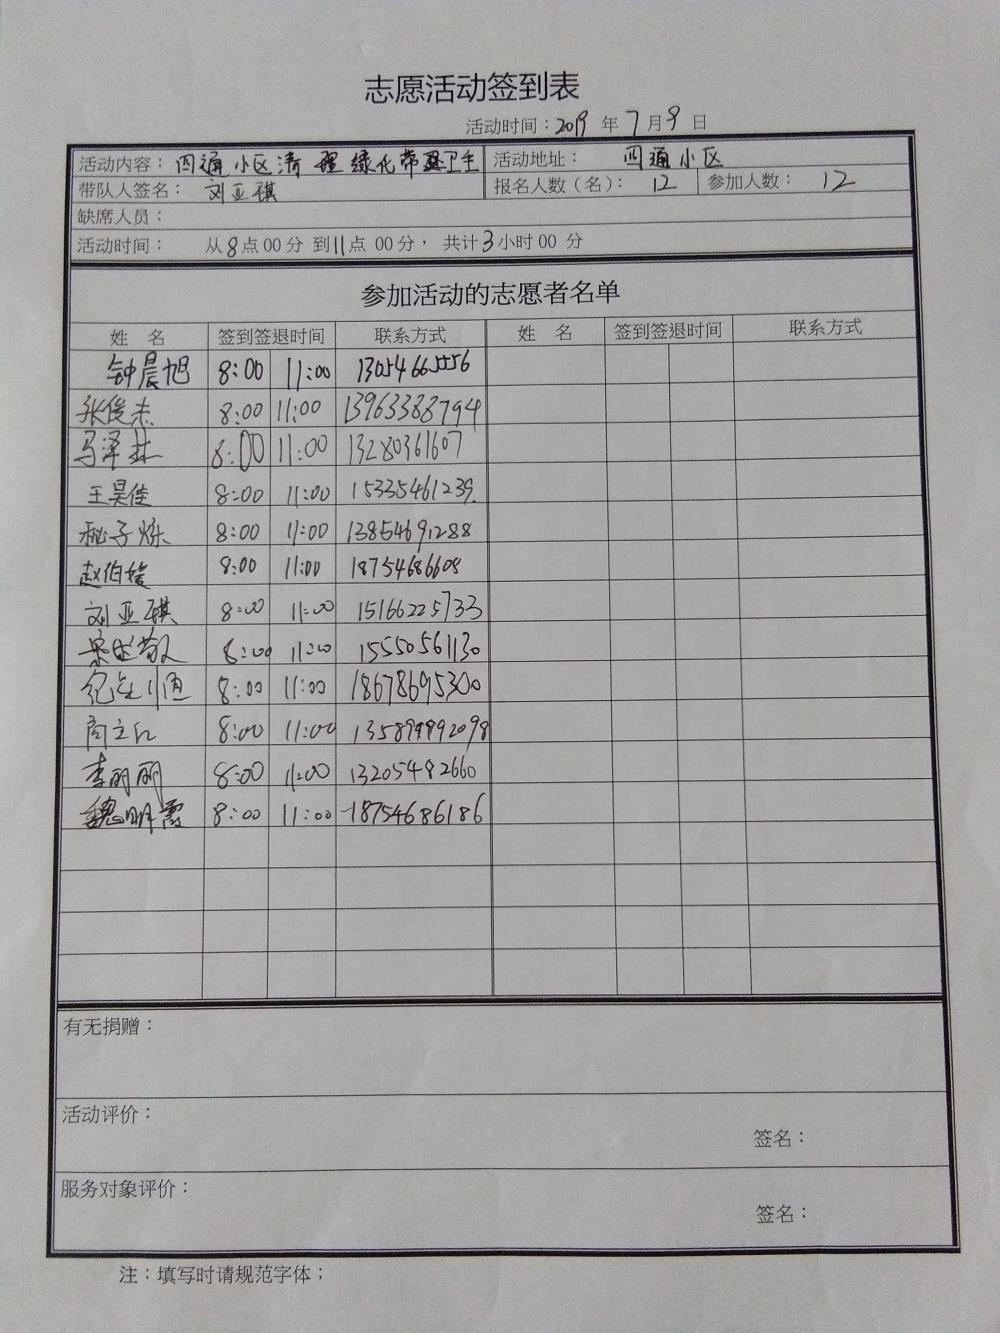 志愿活动签到表
活动时间：2019 年 7 月 9 日
活动内容：四通小区清理绿化带卫生 活动地址： 四通小区
带队人签名： 刘亚琪 报名人数（名）： 12 参加人数： 12
缺席人员：
活动时间： 从 8 点 00 分 到 11 点 00 分， 共计 3 小时 00 分
参加活动的志愿者名单
姓 名 签到签退时间 联系方式 姓 名 签到签退时间 联系方式
钟晨旭 8:00 11:00 13054665556
张俊杰 8:00 11:00 13963388794
马泽林 8:00 11:00 13280361607
王昊佳 8:00 11:00 15335461239
秘子烁 8:00 11:00 13854691288
赵伯媛 8:00 11:00 18754686608
刘亚琪 8:00 11:00 15166225733
8:00 11:00 15550561130
8:00 11:00 18678695300
商立红 8:00 11:00 135899992098
李丽丽 8:00 11:00 13205492660
魏明霞 8:00 11:00 18754686186
有无捐赠：
活动评价：
签名：
服务对象评价：
签名：
注：填写时请规范字体；